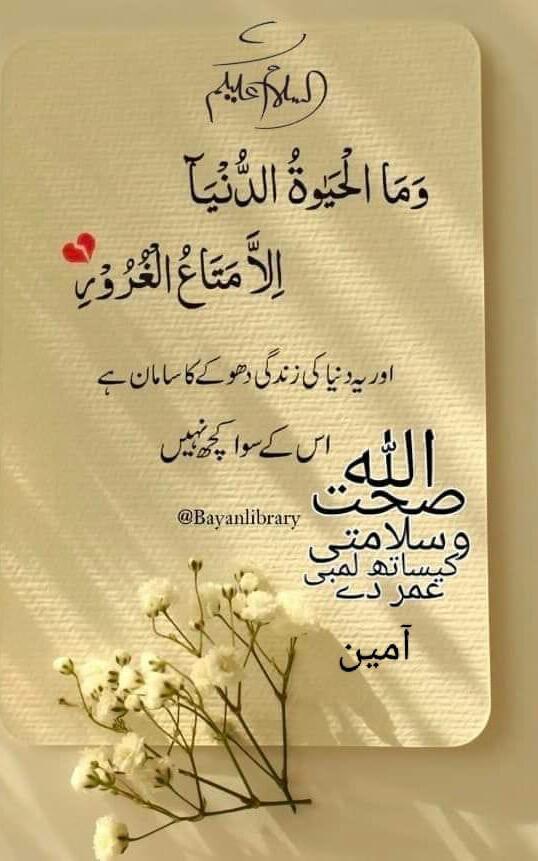 السلام علیکم
وَمَا الْحَيٰوةُ الدُّنْيَآ
اِلاَّ مَتَاعُ الْغُرُوْرِ
اور یہ دنیا کی زندگی دھوکے کا سامان ہے
اس کے سوا کچھ نہیں
@Bayanlibrary
اللہ
صحت
وسلامتی
کیساتھ لمبی
عمر دے
آمین